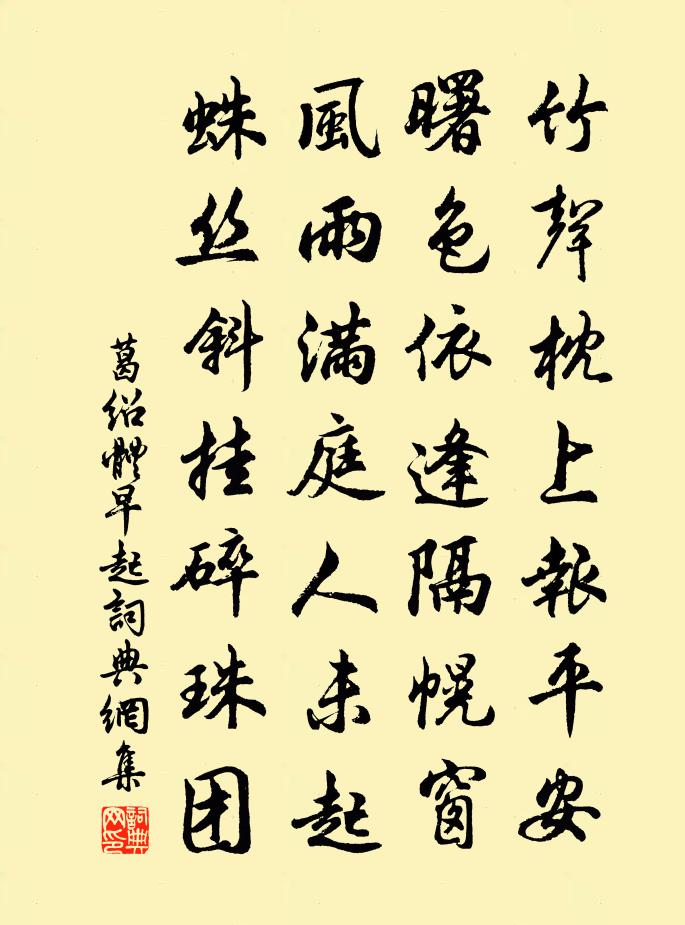 竹聲枕上報平安
曙色依逢隔幌窗
風雨滿庭人未起
蛛丝斜挂碎珠团
葛绍體早起詞典網集
詞典网印